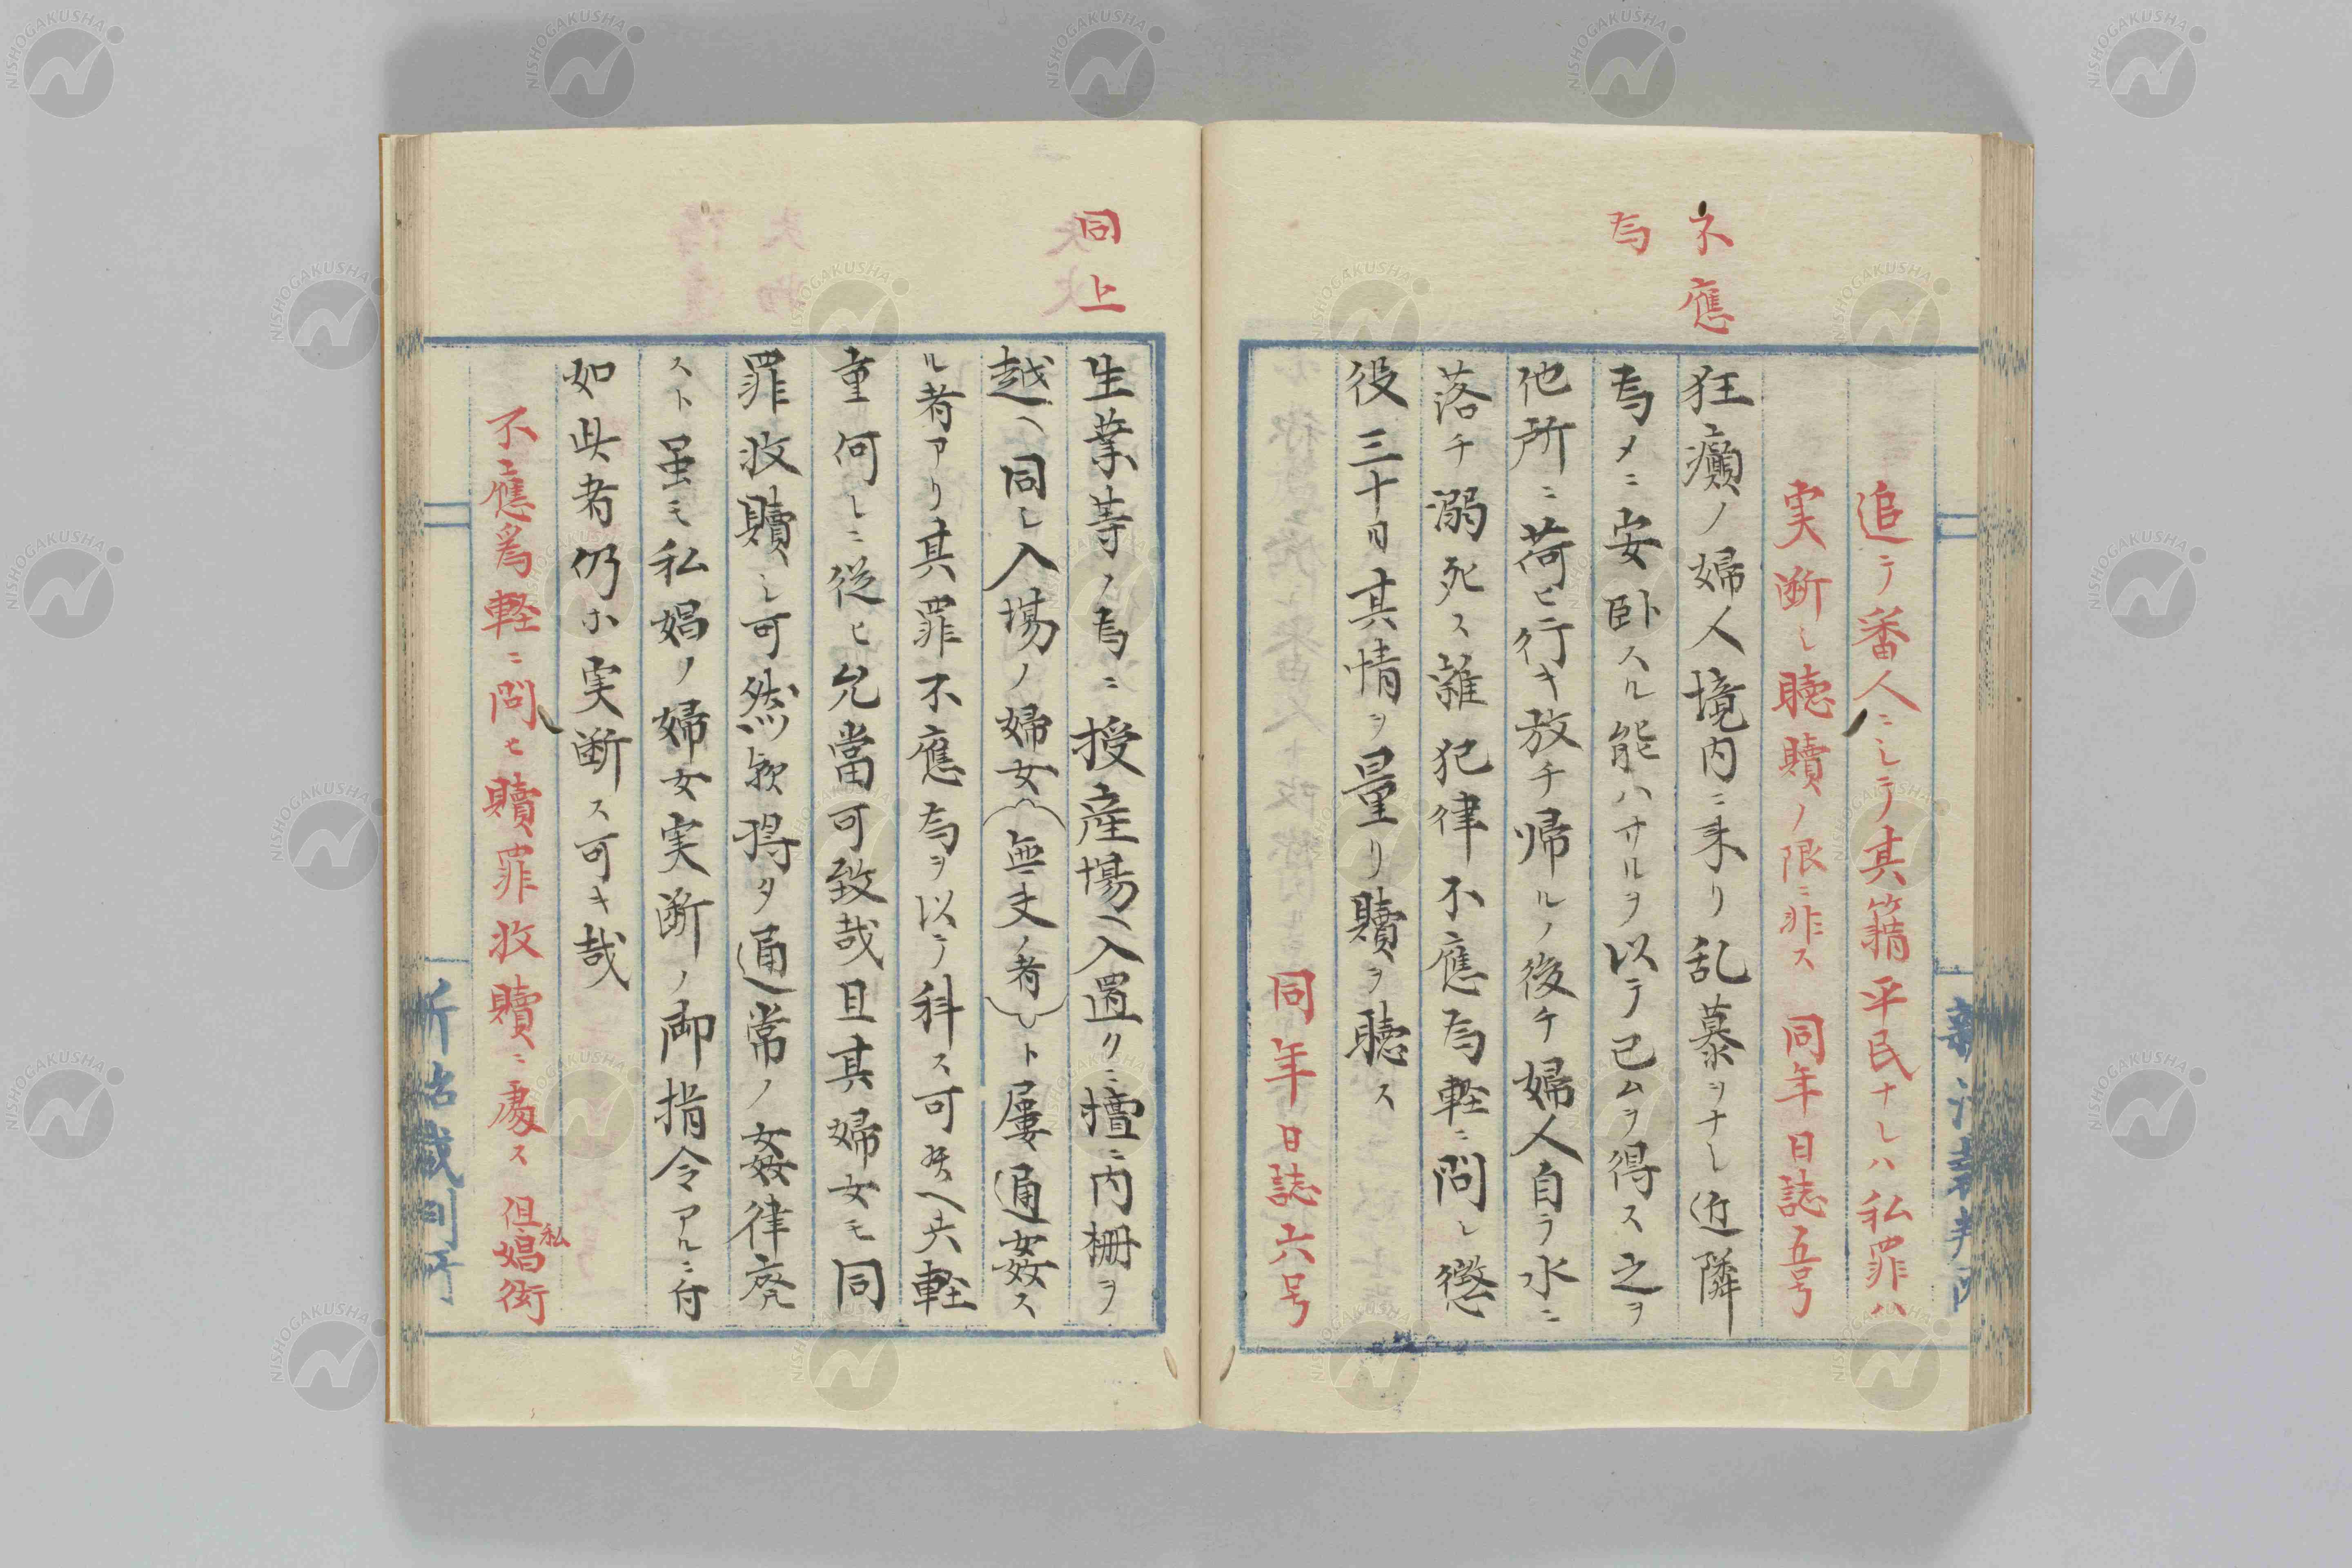 不應
為
追テ番人ニシテ其籍平民ナレハ私罪ハ
実断シ聴贖ノ限ニ非ス 同年日誌五号
狂癲ノ婦人境内ニ来リ乱暴ヲナシ近隣
為メニ安卧スル能ハサルヲ以テ已ムヲ得ス之ヲ
他所ニ荷ヒ行キ放チ帰ルノ後チ婦人自ラ水ニ
落チ溺死ス雖犯律不應為軽ニ問シ懲
役三十日其情ヲ量リ贖ヲ聴ス
同年日誌六号
同上
生業等ノ為ニ授産場ヘ入置クニ擅ニ内柵ヲ
越ヘ同シ入場ノ婦女(無夫ノ者)ト屢通姦ス
ル者アリ其罪不應為ヲ以テ科ス可然ヘ共軽
重何レニ従ヒ允當可致哉且其婦女モ同
罪收贖シ可然歟得タ通常ノ姦律廃
スト虽モ私娼ノ婦女実断ノ御指令アルニ付
如此者仍ホ実断ス可キ哉
不應爲軽ニ問ヒ贖罪收贖ニ處ス 但私娼衒
新治裁判所
NISHOGAKUSHA